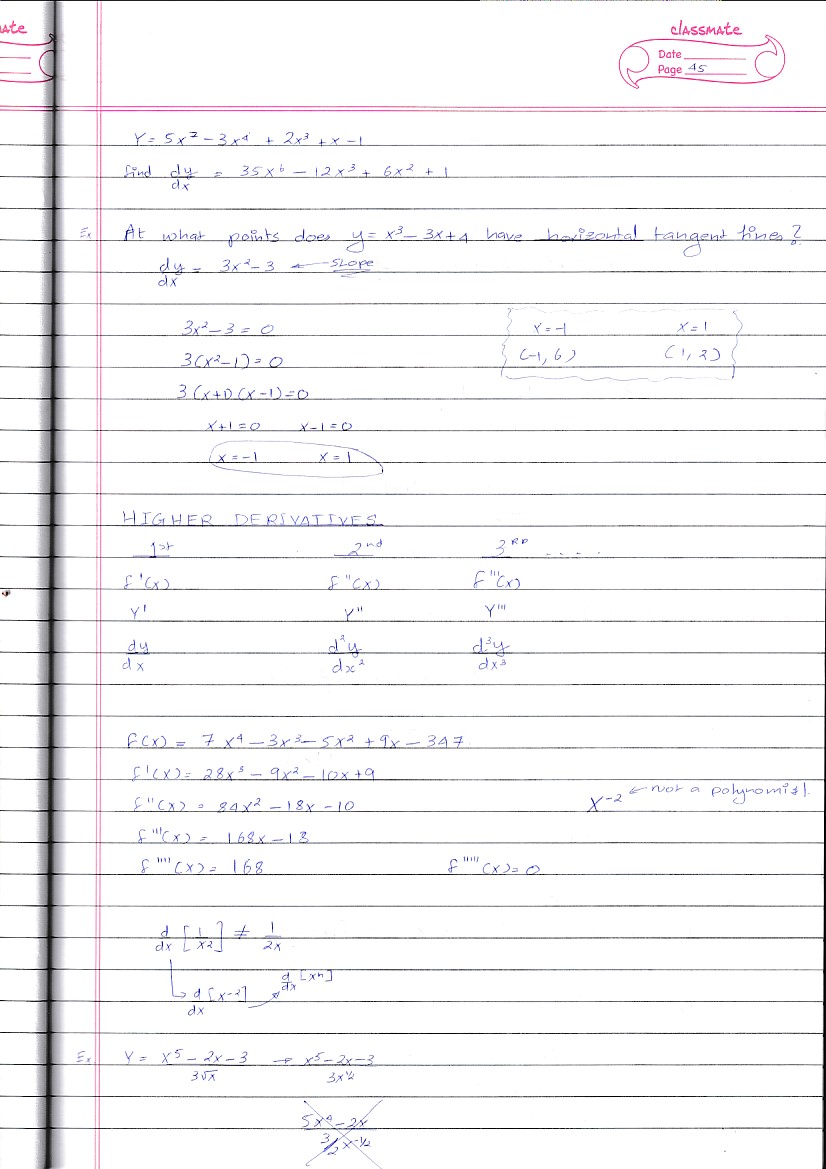 ate
classmate
Date
Page 45
Y = 5x⁷ - 3x⁴ + 2x³ + x - 1
find dy/dx = 35x⁶ - 12x³ + 6x² + 1
Ex At what points does y = x³ - 3x + 4 have horizontal tangent lines?
dy/dx = 3x² - 3 ← SLOPE
3x² - 3 = 0
x = -1 x = 1
3(x² - 1) = 0
(-1, 6) (1, 2)
3(x+1)(x-1) = 0
x+1 = 0 x-1 = 0
x = -1 x = 1
HIGHER DERIVATIVES
1st 2nd 3RD .....
f'(x) f''(x) f'''(x)
Y' Y'' Y'''
dy/dx d²y/dx² d³y/dx³
f(x) = 7x⁴ - 3x³ - 5x² + 9x - 347
f'(x) = 28x³ - 9x² - 10x + 9
f''(x) = 84x² - 18x - 10
x⁻² ← not a polynomial.
f'''(x) = 168x - 18
f''''(x) = 168 f'''''(x) = 0
d/dx [1/x²] ≠ 1/2x
d/dx [x⁻²] d/dx [xⁿ]
Ex. Y = x⁵ - 2x - 3 / 3√x → x⁵ - 2x - 3 / 3x^½
5x⁴ - 2x / 3/2 x^-1/2